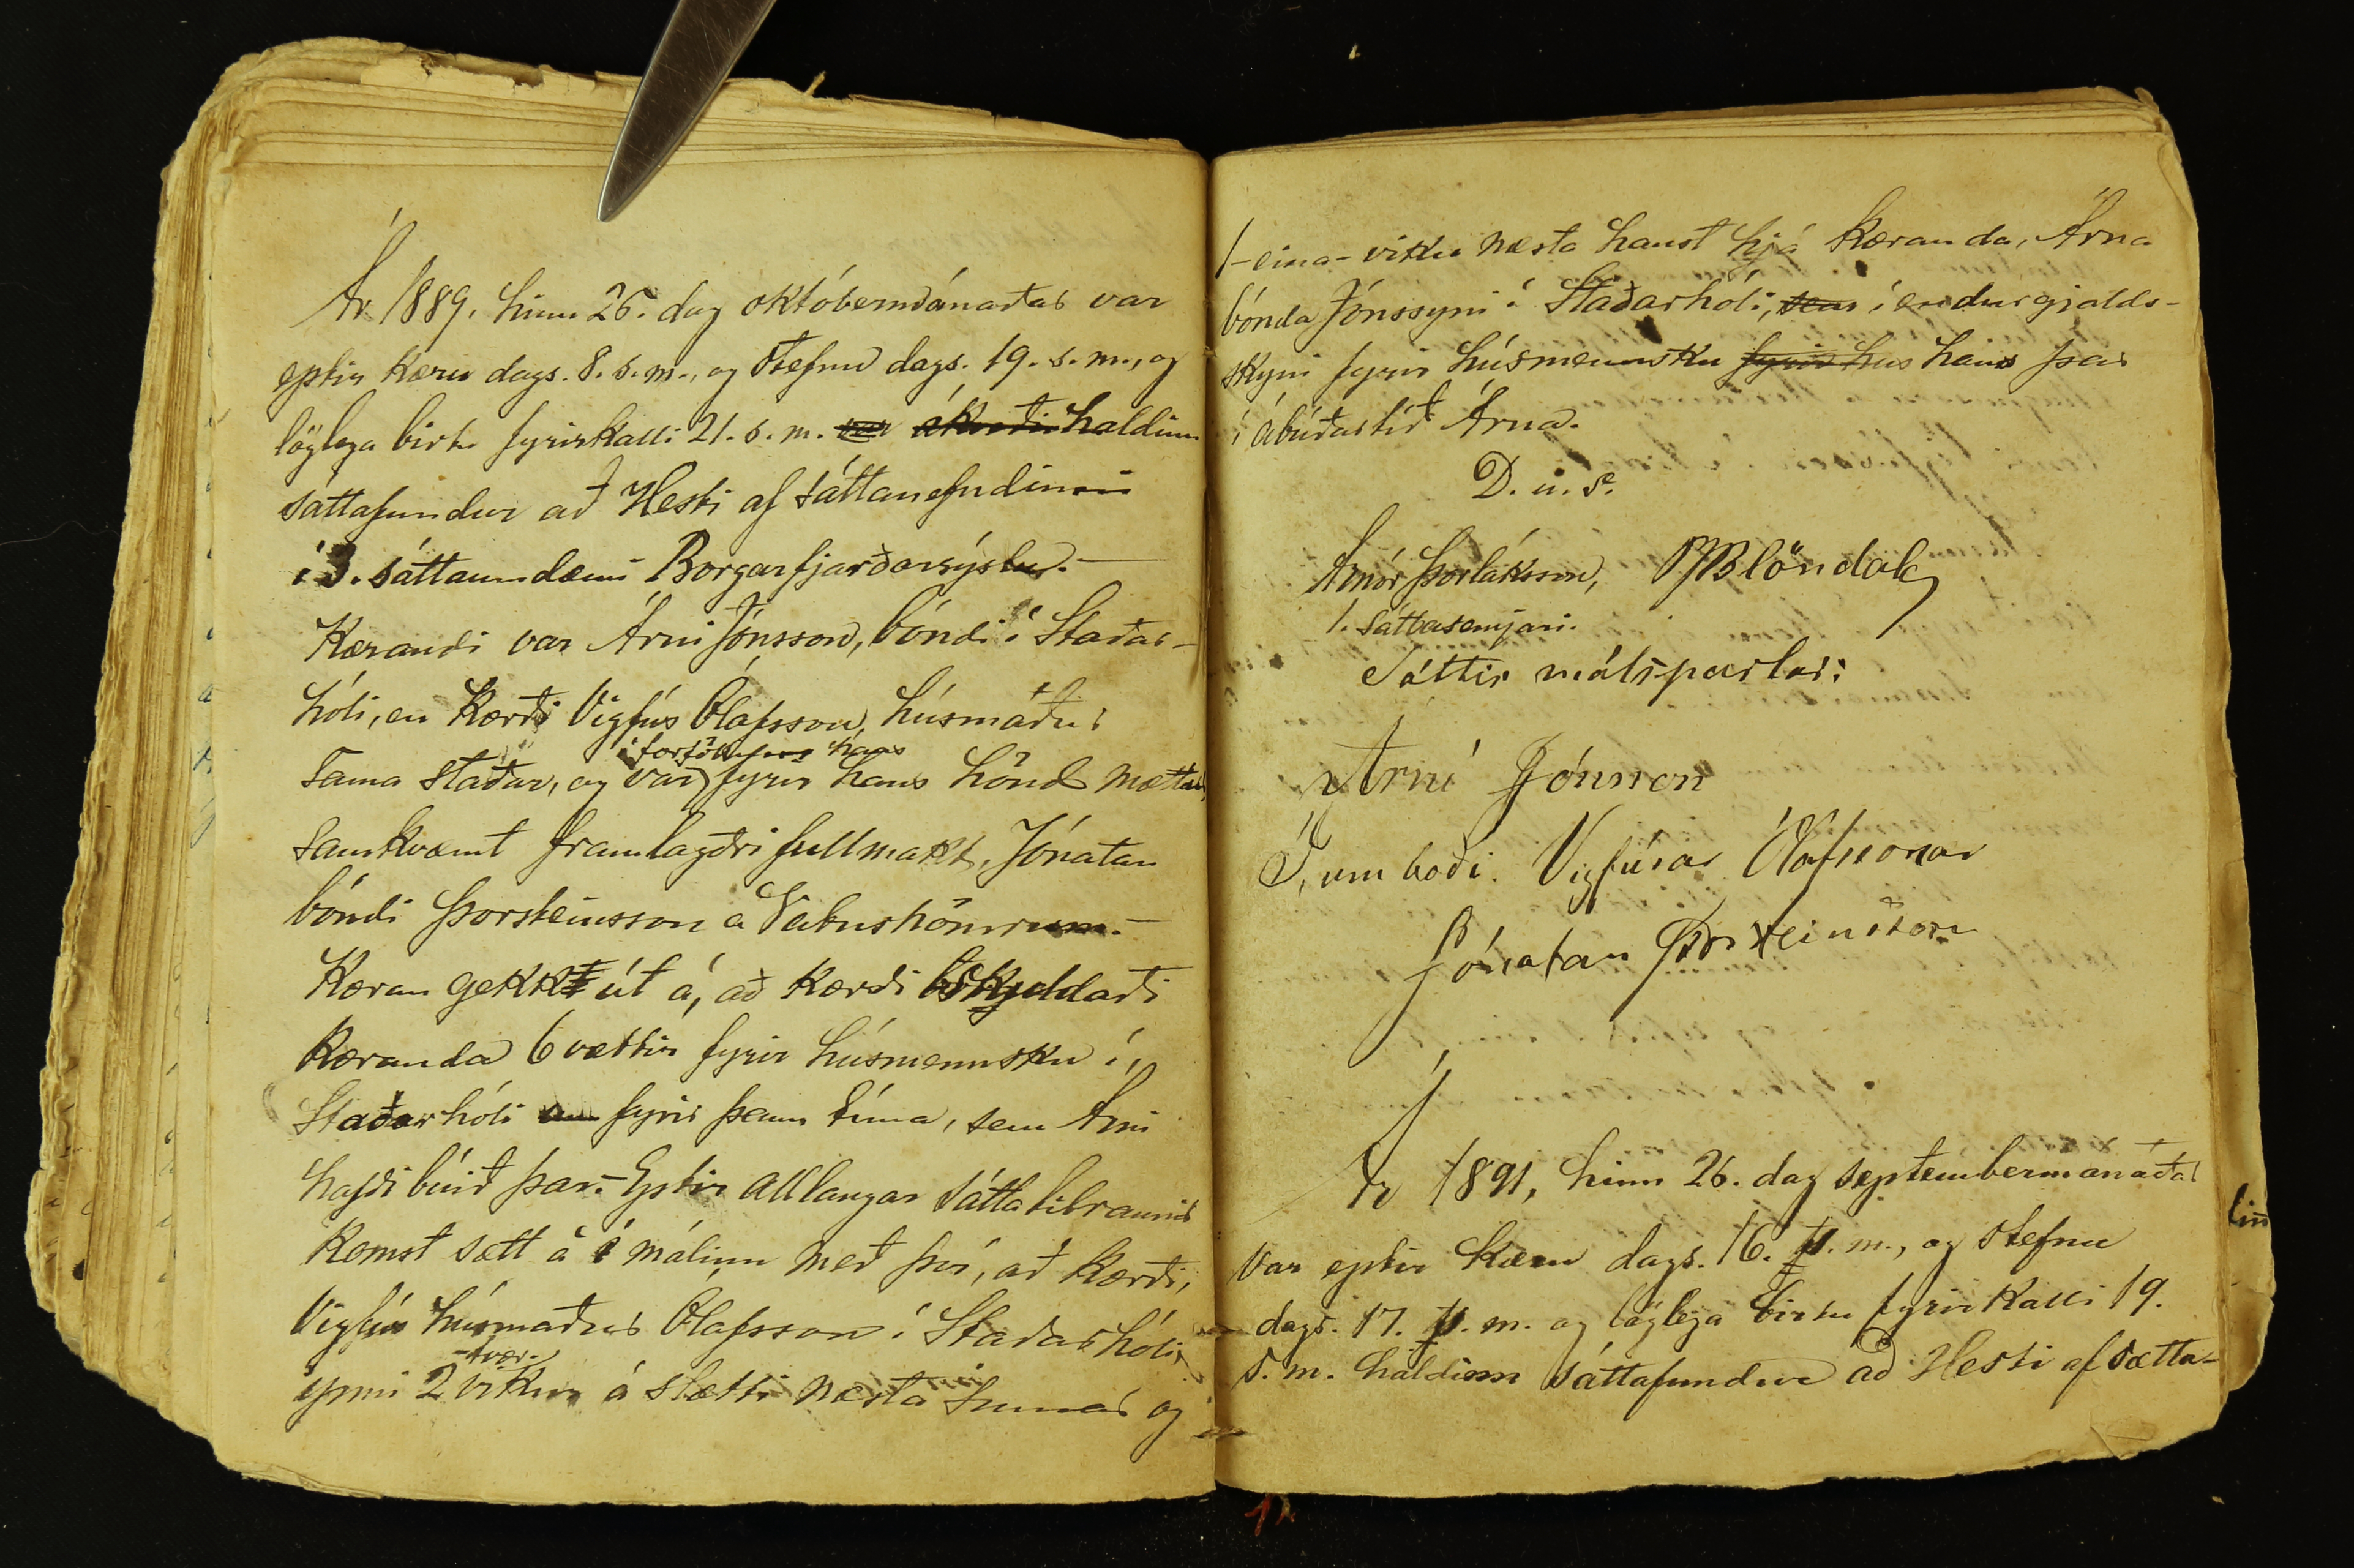 Ár 1889, hinn 26. dag októbermánaðar var
eptir kæru dags. 8. s. m., og stefnu dags. 19. s. m., og
löglega birtu fyrirkalli 21. s. m. var ákveðin haldinn
sáttafundur að Hesti af sáttanefndinni
í 3. sáttaumdæmi Borgarfjarðarsýslu. —
Kærandi var Árni Jónsson, bóndi í Staðar-
hóli, en kærði Vigfús Ólafsson, húsmaður
í forföllum hans
sama staðar, og var fyrir hans hönd mættur,
samkvæmt framlagðri fullmakt, Jónatan
bóndi Þorsteinsson á Vatnshömrum. —
Kæran gekk út á, að kærði skuldaði
kæranda 6 vættir fyrir húsmennsku í
Staðarhóli fyrir þann tíma, sem Árni
hafði búið þar. – Eptir allangar sáttatilraunir
komst sætt á í málinu með því, að kærði,
Vigfús húsmaður Ólafsson í Staðarhóli,
-tvær-
ynni 2 vikur á slætti næsta sumar og
1 - eina - viku næsta haust hjá kæranda, Árna
bónda Jónssyni í Staðarhóli, sem í endurgjalds-
skyni fyrir húsmennsku fyrir hus hans þar
í ábúðartíð Árna.
D. u. s.
Arnór Þorláksson, Blöndal
1. sáttasemjari.
Sáttir málspartar:
Árni Jónsson
Í umboði Vigfúsar Ólafssonar
Jónatan Þorsteinsson
Ár 1891, hinn 26. dag septembermánaðar
var eptir kæru dags. 16. þ. m., og stefnu
dags. 17. þ. m. og löglega birtu fyrirkalli 19.
s. m. haldinn sáttafundur að Hesti af sátta-